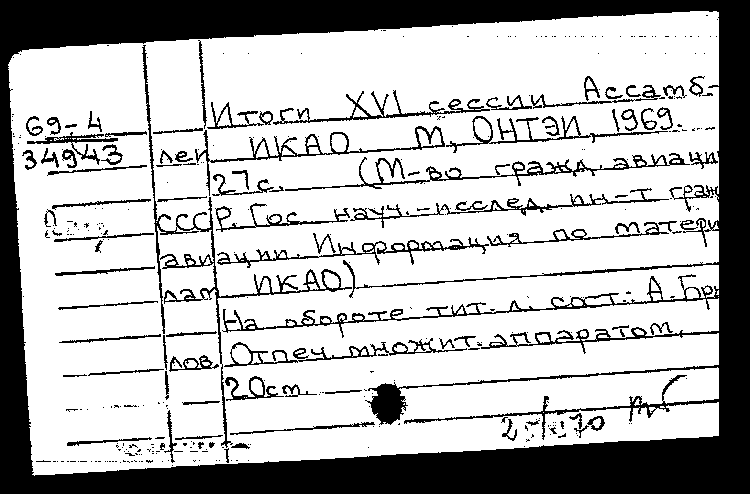 69-4
34943
Итоги XVI сессии Ассамб-
леи ИКАО. М, ОНТЭИ, 1969.
27с. (М-во гражд. авиаци
СССР. Гос. науч.-исслед. ин-т граж
авиации. Информация по матери
лам ИКАО).
На обороте тит. л. сост.: А. Бры
лов. Отпеч. множит. аппаратом.
20ст.